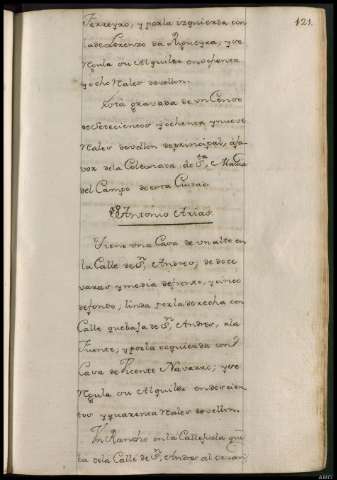 121.
Ferreyro, y por la izquierda con
la de Lorenzo da Riqueyra, y se
Regula su Alquiler en ochenta
y ocho Reales de vellon.
Está gravada de un Censo
de Setecientos y ochenta y nueve
Reales de vellon de principal, a fa-
vor de la Colexiata de Sta. Maria
del Campo de esta Ciudad
Dn. Antonio Arias
Tiene una Casa de un alto en
la Calle de Sn. Andres, de doce
varas y media de frente, y cinco
de fondo, linda por la derecha con
Calle que baja de Sn. Andres, a la
Fuente, y por la izquierda con
Casa de Vicente Navarro, y se
Regula su Alquiler en doscien-
tos y quarenta Reales de vellon.
Un Rancho en la Calle que
la de la Calle de Sn. Andres al